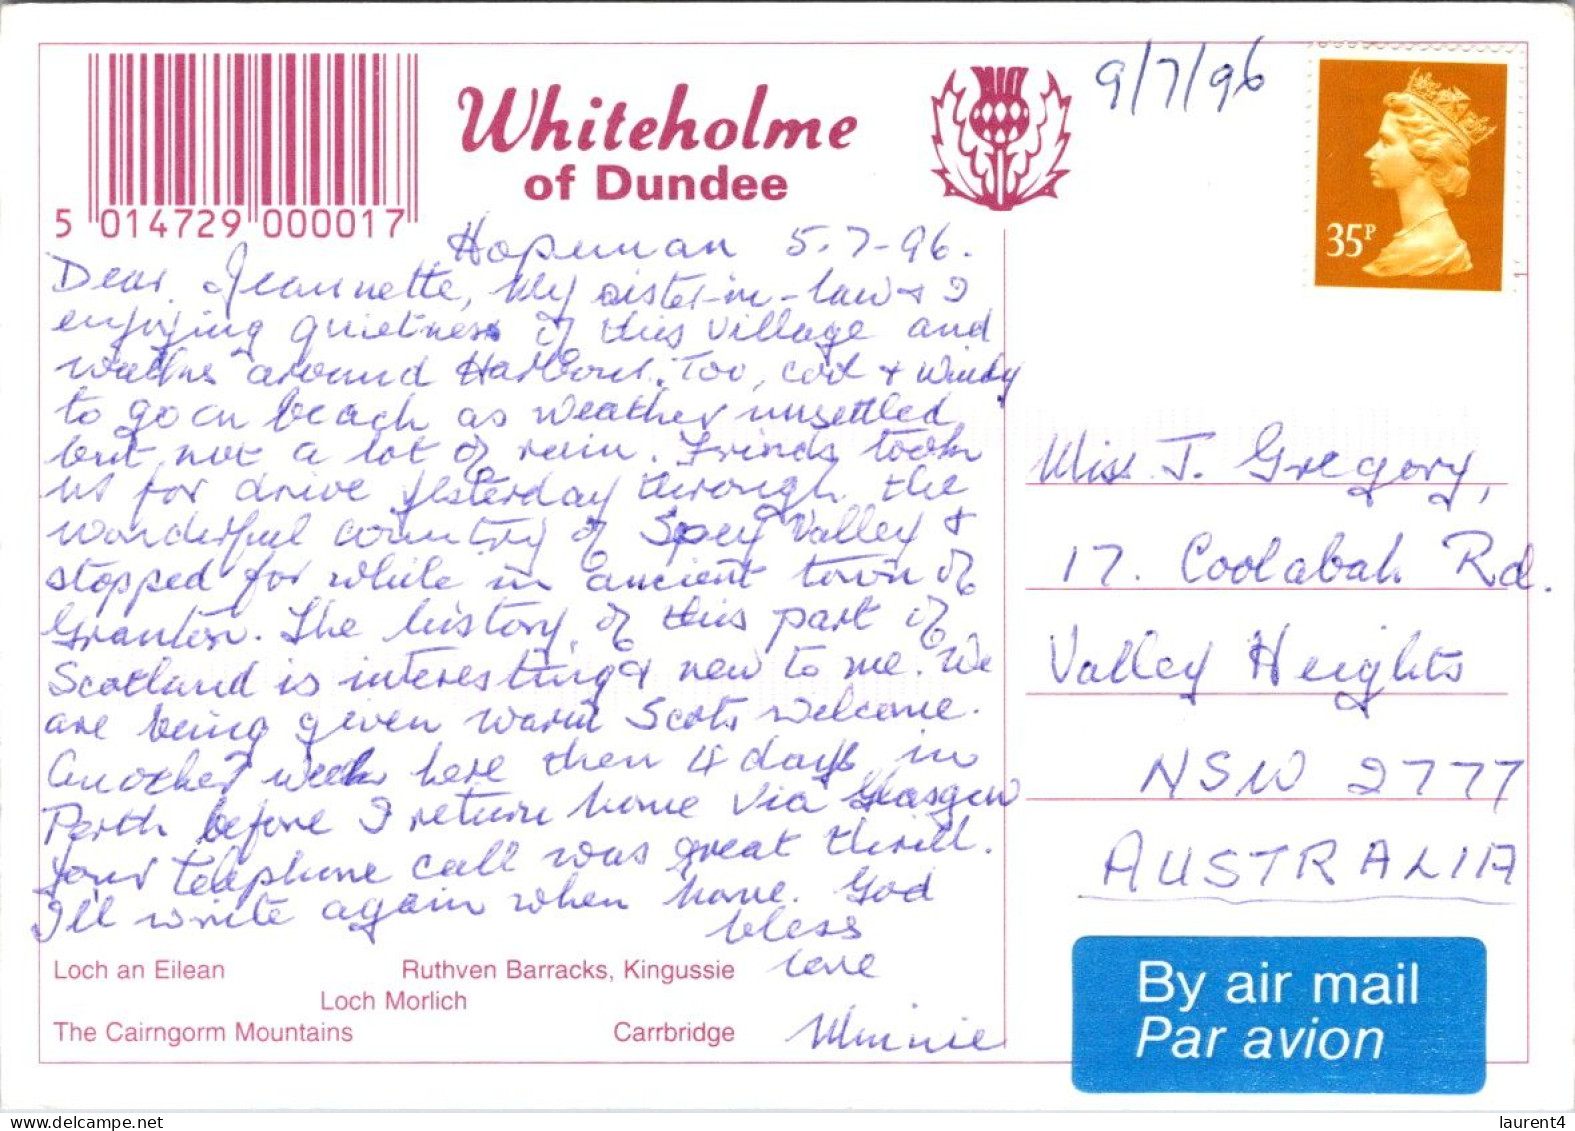 5 014729 000017
Whiteholme
of Dundee
9/7/96
35P
Hopeman 5.7-96.
Dear Jeannette, My sister-in-law & I
enjoying quietness of this village and
walks around Harbour. Too, cool & windy
to go on beach as weather unsettled
but not a lot of rain. Frinds took
us for drive yesterday through the
wonderful country of Spey Valley &
stopped for while in ancient town of
Granton. The history of this part of
Scotland is interesting & new to me. We
are being given warm Scots welcome.
Another week here then 4 days in
Perth before I return home via Glasgow
your telephone call was great thrill.
I'll write again when home. God
bless
love
Minnie
Miss J. Gregory,
17. Coolabah Rd.
Valley Heights
NSW 2777
AUSTRALIA
Loch an Eilean Ruthven Barracks, Kingussie
Loch Morlich
The Cairngorm Mountains Carrbridge
By air mail
Par avion
laurent4